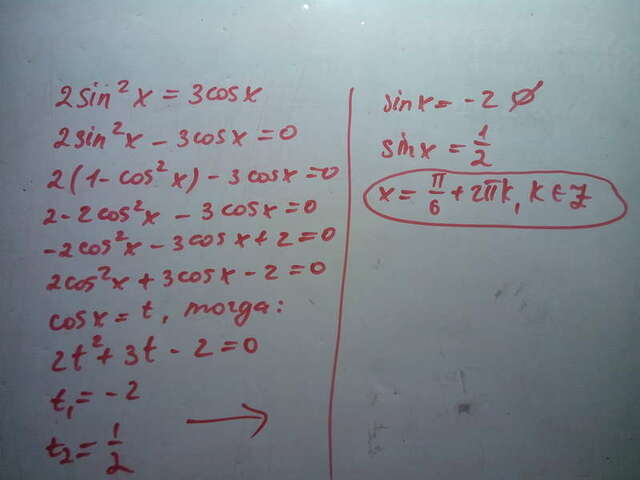 2sin²x = 3cosx
2sin²x - 3cosx = 0
2(1-cos²x) - 3cosx = 0
2-2cos²x - 3cosx = 0
-2cos²x - 3cosx + 2 = 0
2cos²x + 3cosx - 2 = 0
cosx = t, тогда:
2t² + 3t - 2 = 0
t₁ = -2
t₂ = 1/2
sinx = -2 ∅
sinx = 1/2
x = π/6 + 2πk, k ∈ Z